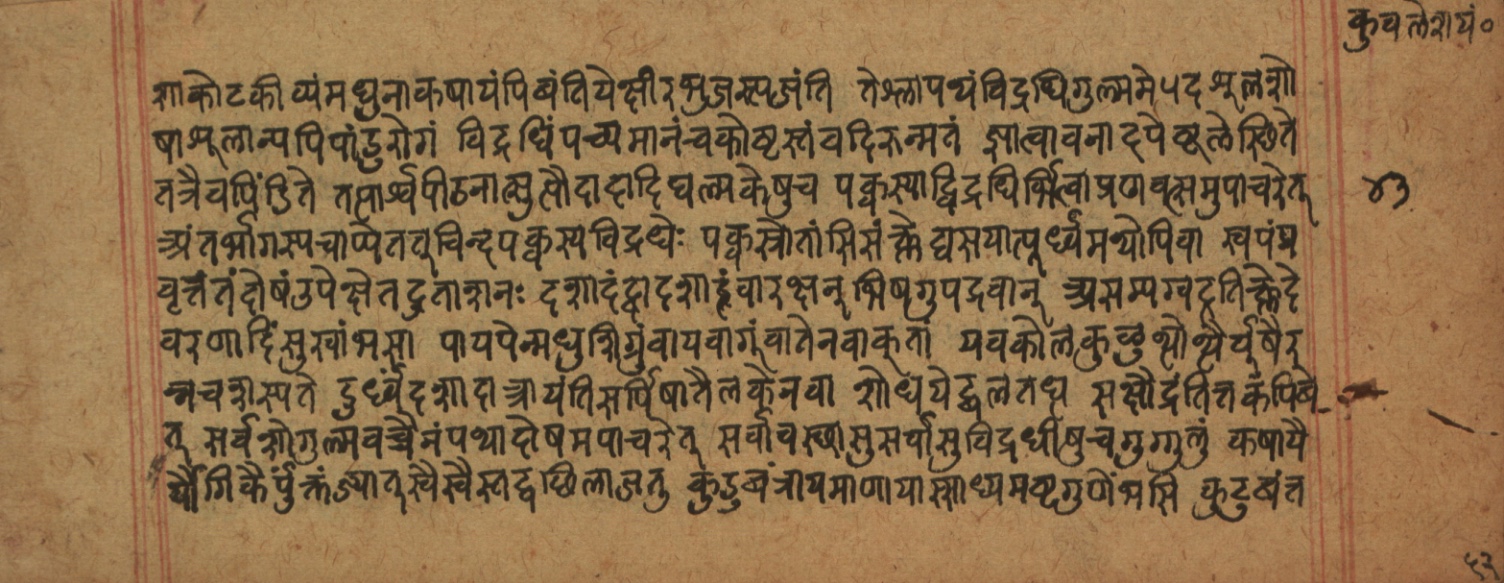 कुवलेशयं०
शाकोटकीव्यंमधुनाकषायंपिबंतियेक्षीरभुजस्त्यजंति तेश्लापथ्यंविद्रधिगुल्ममेपदशूलशो
षाशूलान्यपिपांडुरोगं विद्रधिंपच्यमानंचकोष्टस्तंवदिरुन्मतं ज्ञात्वावनाद्पैष्शूलेस्छिते
तत्रैवपिंडिते तत्पार्श्वपीठनात्सुप्तौदाहादिघल्मकेषुच पक्वस्याद्विद्रधिर्भित्वाव्रणवत्समुपाचरेत्
४३
अंतर्भागस्यचाप्येततुचिन्हपक्वस्यविद्रधेः पक्वस्त्रोतांसिसंक्लेद्यसयात्पूर्ध्वमथोपिवा स्वयंप्र
वृत्तंतंदोषंउपेक्षेतद्रुताशनः दशादंद्वादशाहंवारक्षन्भिषगुपद्रवान् असम्यग्वद्दतिक्लेदे
वरणादिंसुखांभसा पाययेन्मधुशिग्रुंवायवागूंवातेनवाकृतां यवकोलकुच्छुथ्योथ्यैर्यूषैर
न्नचशस्यते दुर्ध्वंदशादात्रायंतिसर्पिषातैलकेनवा शोधयेद्बलतध सक्षौद्रंतिक्तकंपिबे
त् सर्वशोगुल्मवच्चैनंपथादोषमपाचरेत् सर्वावस्छासुसर्वासुविद्रधीषुचगुग्गुलुं कषायै
र्यौगिकैर्पुक्तंज्यात्स्वैस्वैस्तद्वछिलाजतु कुडुबंत्रायमाणायास्साध्यमष्टगुणेंभसि कुडुबंत
६३